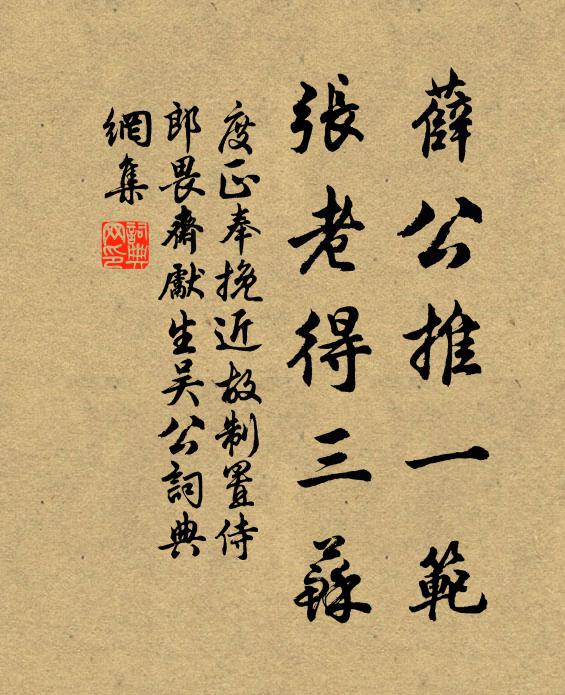 薛公推一範
張老得三蘇
度正奉挽近故制置侍
郎畏齋獻生吳公詞典
網集
詞典
网印